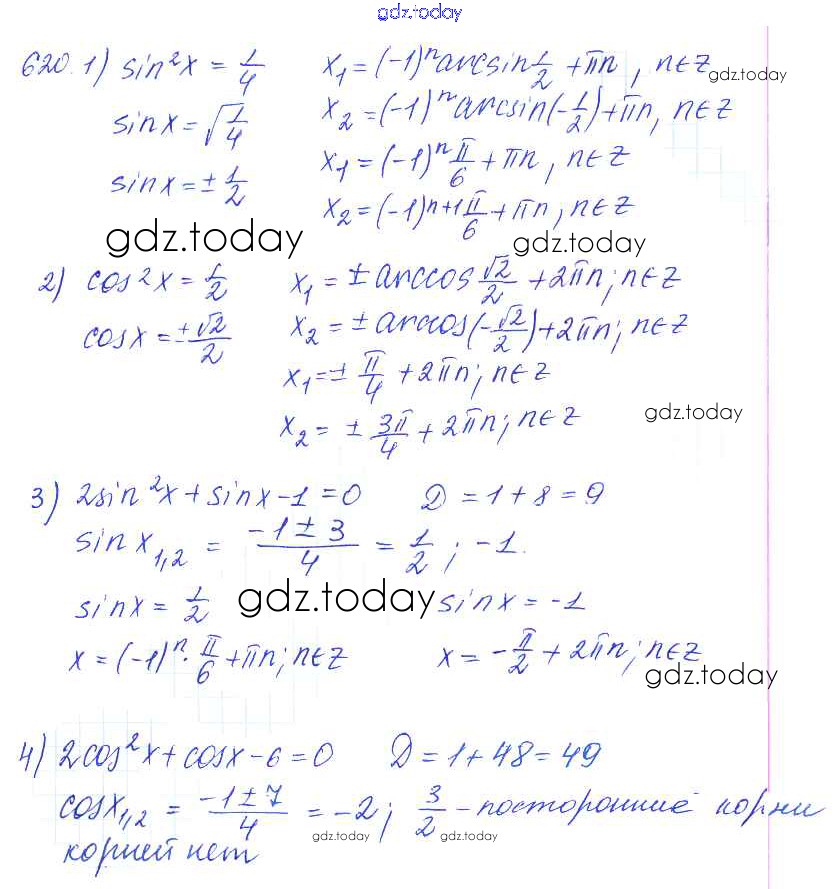 gdz.today
620. 1) sin²x = 1/4 x₁ = (-1)ⁿ arcsin 1/2 + πn, n∈Z gdz.today
sinx = √1/4 x₂ = (-1)ⁿ arcsin(-1/2) + πn, n∈Z
sinx = ± 1/2 x₁ = (-1)ⁿ π/6 + πn, n∈Z
x₂ = (-1)ⁿ⁺¹ π/6 + πn, n∈Z
gdz.today gdz.today
2) cos²x = 1/2 x₁ = ± arccos √2/2 + 2πn; n∈Z
cosx = ±√2/2 x₂ = ± arccos(-√2/2) + 2πn; n∈Z
x₁ = ± π/4 + 2πn; n∈Z
x₂ = ± 3π/4 + 2πn; n∈Z gdz.today
3) 2sin²x + sinx - 1 = 0 D = 1 + 8 = 9
sin x₁,₂ = (-1 ± 3)/4 = 1/2; -1.
sinx = 1/2 gdz.today sinx = -1
x = (-1)ⁿ · π/6 + πn; n∈Z x = - π/2 + 2πn; n∈Z
gdz.today
4) 2cos²x + cosx - 6 = 0 D = 1 + 48 = 49
cosx₁,₂ = (-1 ± 7)/4 = -2; 3/2 - посторонние корни
корней нет gdz.today gdz.today